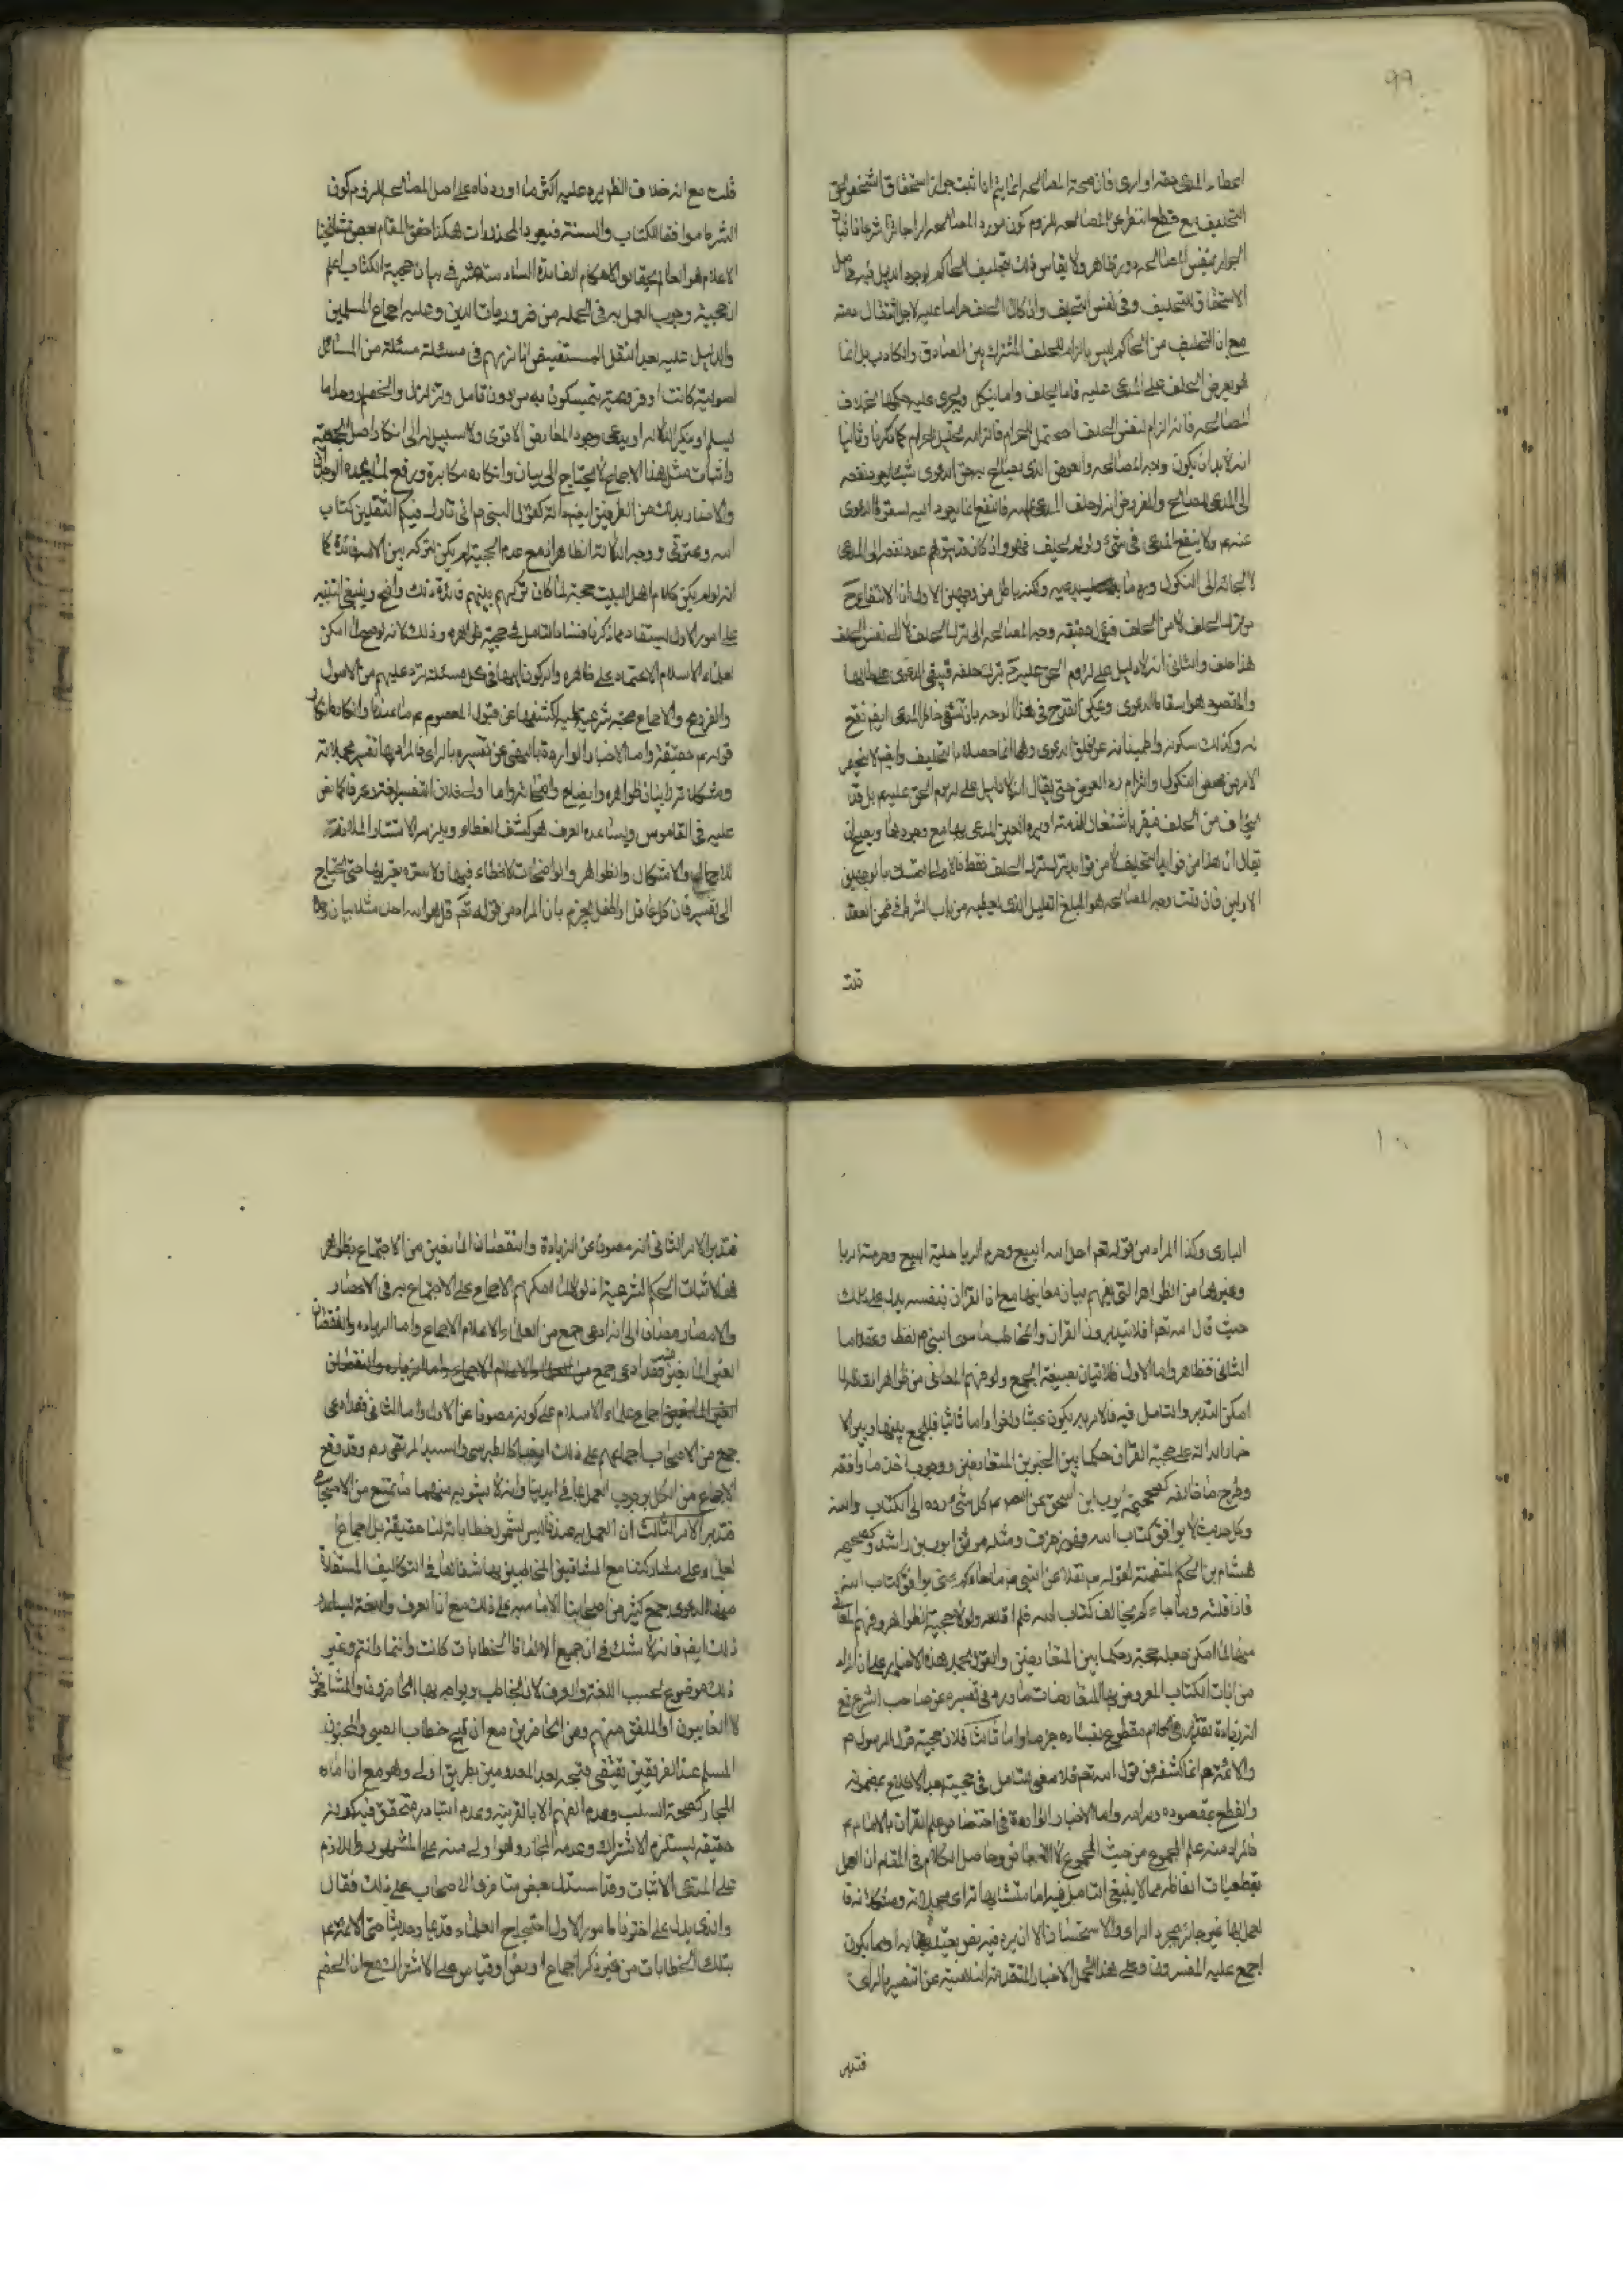 ٩٩
اعطاء المدعى حقه او ارى فان صحة المصالحه انما يتم اذا ثبت جواز استحقاق الشخص
التحليف مع قطع النظر عن المصالحه للزوم كون مورد المصالحه امرا جائزا شرعا
الجواز بنفس المصالحه دور ظاهر ولا يقاس ذلك بتحليف الحاكم لوجود الدليل فيه على
الاستحقاق للتحليف وفى نفس التحليف وان كان الحلف حراما عليه لاجل اشتغال ذمته
مع ان التحليف من الحاكم ليس بالزام للحلف المشترك بين الصادق والكاذب بل انما
هو يعرض الحلف على المدعى عليه فاما يحلف واما ينكل ويجرى عليه حكمها بخلاف
المصالحه فانه الزام لنفس الحلف المحتمل للحرام فالزامه محتمل الحرام كما ذكرنا وثانيا
انه لا بد ان يكون وجه المصالحه والعوض الذى يصالح به حق الدعوى شيئا يعود نفعه
الى المدعى المصالح والمفروض انه لو حلف المدعى عليه فالنفع انما يعود اليه لسقوط الدعوى
عنهم ولا ينفع المدعى فى شئ ولو لم يحلف فهو وان كان قد يتوهم عود نفعه الى المدعى
لالجائه الى النكول ورد ما يدعيه ولكنه باطل من وجهين الاول ان الانتفاع ح
من ترك الحلف لا من الحلف ففى الحقيقه وجه المصالحه الى ترك الحلف لا الى نفس الحلف
هذا خلف والثانى انه لا دليل على لزوم الحق عليه ح بترك حلفه فيبقى الدعوى على حالها
والمقصود هو اسقاط الدعوى ويمكن القدح فى هذا الوجه بان تشفى خاطر المدعى ايضا نفع
له وكذلك سكونه واطمينانه عن قلق الدعوى وهما انما حصلا بالتحليف وايضا لا ينحصر
الامر فى محض النكول والزام رد العوض حتى يقال انه لا دليل على لزوم الحق عليهم بل قد
يخاف من الحلف فيقر باشتغال الذمة او يرد العين المدعى بها مع وجودها ويصح ان
يقال ان هذا من فوايد التحليف لا من فوايد ترك الحلف فقط فالاولى التمسك بالوجهين
الاولين فان قلت وجه المصالحه هو المبلغ القليل الذى يعطيه من باب الشرط فى ضمن العقد
قلت
قلت مع انه خلاف الظ يرد عليه اكثر ما اوردناه على اصل المصالحه للزوم كون
الشرط موافقا للكتاب والسنة فيعود المحذورات هكذا حقق المقام بعض مشائخنا
الاعلام هو العالم بحقايق الاحكام الفائدة السادسة عشر فى بيان حجية الكتاب اعلم
ان حجيته ووجوب العمل به فى الجمله من ضروريات الدين وعليه اجماع المسلمين
والدليل عليه بعد النقل المستفيض انا نريهم فى مسئلة مسئلة من المسائل
اصولية كانت او فروعية يتمسكون به من دون تامل وتزلزل والخصم وحده اما
يسلم او ينكر الدلالة او يدعى وجود المعارض الاقوى ولا سبيل له الى انكار اصل الحجية
واثبات مثل هذا الاجماع لا يحتاج الى بيان وانكاره مكابرة ورفع لما يجده الوجدان
والاخبار به من الطرفين ايضا كثيرة كقول النبى ص انى تارك فيكم الثقلين كتاب
الله وعترتى ووجه الدلالة الظاهر انه مع عدم الحجية لم يكن لتركه بين الامة فائدة كما
انه لو لم يكن كلام اهل البيت حجية لما كان تركهم بينهم فائدة وذلك واضح وينبغى التنبيه
على امور الاول يستفاد مما ذكرنا فساد التامل فى حجية ظواهره وذلك لانه لو صح لما امكن
لعلماء الاسلام الاعتماد على ظاهره والركون اليها فى كل مسئلة ترد عليهم من الاصول
والفروع والاجماع حجة شرعية عليه لكشفها عن قبول المعصوم ع ما عندنا وانكاره انكار
قوله ع حقيقة واما الاخبار الواردة بالنهى عن تفسيره بالراى فالمراد بها تفسير مجملاته
ومشكلاته لا بيان ظواهره وايضاح واضحاته واما اولا فلان التفسير لغة وعرفا كما نص
عليه فى القاموس ويساعده العرف هو كشف الغطاء ويلزمه الاستتار الملازمة
للاجمال والاشكال والظواهر والواضحات لا غطاء فيها ولا ستر يعتريها حتى يحتاج
الى تفسير فان كل عاقل او طفل يجزم بان المراد من قوله تع قل هو الله احد مثلا بيان وحدة
١٠٠
البارى وكذا المراد من قوله تعم احل الله البيع وحرم الربا حلية البيع وحرمة الربا
وغيرها من الظواهر التى يفهم ببيان معاينها مع ان القران بنفسه يدل على ذلك
حيث قال الله تعم افلا يتدبرون القران والمخاطب ما سوى النبى ص لفظا وعقلا اما
الثانى فظاهر واما الاول فلاتيان بصيغة الجمع ولو فهم المعانى من ظواهر الفاظه لما
امكن التدبر والتامل فيه فالامر به يكون عبثا ولغوا واما ثانيا فللجمع بينها وبين الا
خبار الدالة على حجية القران حكما بين الخبرين المتعارضين ووجوب اخذ ما وافقه
وطرح ما خالفه كصحيحة ايوب ابن الحر عن الص ع كل شئ مردود الى الكتاب والسنة
وكل حديث لا يوافق كتاب الله فهو زخرف ومثله موثق ايوب بن راشد وصحيحه
هشام بن الحكم المتضمنة لقوله ص نقلا عن النبى ص ما جاءكم عنى يوافق كتاب الله
فانا قلته وما جاءكم يخالف كتاب الله فلم اقله ولولا حجية الظواهر وفهم المعانى
منها لما امكن جعله حجة وحكما بين المتعارضين والقول بحمل هذه الاخبار على ان المراد
من ايات الكتاب المعروض بها المتعارضات ما ورد فى تفسيره عن صاحب الشرع مع
انه زيادة تقدير فى الكلام مقطوع بفساده جزما واما ثالثا فلان حجية قول الرسول ص
والائمة ع انما كشفه عن قول الله تعم فلا معنى للتامل فى حجيته بعد الاطلاع بمضمونه
والقطع بمقصوده ومرامه واما الاخبار الواردة فى اختصاص علم القران بالامام ع
فالمراد منه علم المجموع من حيث المجموع لا الابعاض وحاصل الكلام فى المقام ان العمل
بقطعيات الفاظه مما لا ينبغى التامل فيه اما متشابهاته اى مجملاته ومشكلاته فا
لعمل بها غير جائز بمجرد الراى والاستحسان الا ان يرد فيه نص يعتد به او ما يكون
اجمع عليه المفسرون وعلى هذا تحمل الاخبار المتقدمة الناهية عن التفسير بالراى
فتدبر
فتدبر الامر الثانى انه مصون عن الزيادة والنقصان المانعين من الاحتجاج بظواهر
هنا لاثبات الحكم الشرعية اذ لولا ذلك لما امكنهم الاجماع على الاحتجاج به فى الاعصار
والامصار مضافا الى انه ادعى جمع من العلماء الاعلام الاجماع واما الزيادة والنقصان
الغير المانعين فقد ادعى جمع من العلماء الاعلام الاجماع واما الزيادة والنقصان
الغير المانعين اجماع علماء الاسلام على كونه مصونا عن الاول واما الثانى فقد ادعى
جمع من الاصحاب اجماعهم على ذلك ايضا كالطبرسى والسيد المرتضى ره وقد وقع
الاجماع من الكل بوجوب العمل بما فى ايدينا وانه لا يشوبه منهما ما يمتنع من الاحتجاج
فتدبر الامر الثالث ان العمل به عندنا ليس لشمول خطاباته لنا حقيقة بل اجماع ا
لعلماء على مشاركتنا مع المشافهين المخاطبين بها شفاها فى التكاليف المستفادة
منها ادعى جمع كثير من اصحابنا الامامية على ذلك مع ان العرف واللغة يساعد
ذلك ايضا فانه لا شك فى ان جميع الالفاظ الخطابات كانت وانتما وانتم وغير
ذلك موضوع بحسب اللغة والعرف لان يخاطب ويواجه بها الحاضرون المشافهون
لا الغايبون او الملفق منهم ومن الحاضرين مع ان قبح خطاب الصبى والمجنون
المسلم عند الفريقين يقتضى قبحه بعد المعدومين بطريق اولى وهو مع ان امارة
المجاز كصحة السلب وعدم الفهم الا بالقرينة وعدم التبادر متحقق فيه كونه
حقيقة يستلزم الاشتراك وعدمه المجاز وهو اولى منه على المشهور واللازم
على المدعى الاثبات وقد استدل بعض متاخرى الاصحاب على ذلك فقال
والذى يدل على اخترناه امور الاول احتجاج العلماء قديما وحديثا حتى الائمة ع
بتلك الخطابات من غير ذكر اجماع او نص او قياس على الاشتراك مع ان الخصم